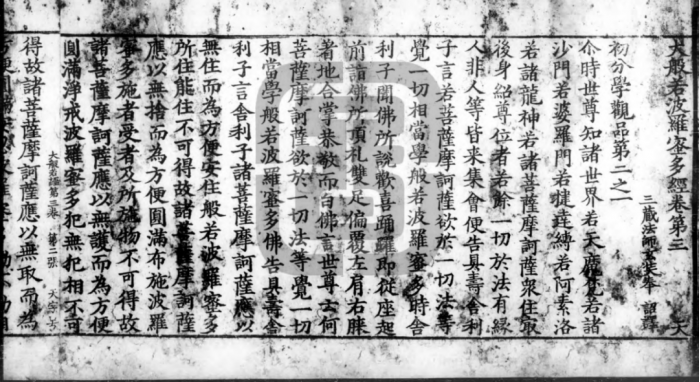 大般若波羅蜜多經卷第三 天
三藏法師玄奘奉 詔譯
初分學觀品第二之一
尒時世尊知諸世界若天魔若諸
沙門若婆羅門若揵達縛若阿素洛
若諸龍神若諸菩薩摩訶薩衆住最
後身紹尊位者若餘一切於法有緣
人非人等皆來集會便告具壽舍利
子言若菩薩摩訶薩欲於一切法等
覺一切相當學般若波羅蜜多時舍
利子聞佛所說歡喜踊躍即從座起
前詣佛所頂礼雙足偏覆左肩右膝
著地合掌恭敬而白佛言世尊云何
菩薩摩訶薩欲於一切法等覺一切
相當學般若波羅蜜多佛告具壽舍
利子言舍利子諸菩薩摩訶薩應以
無住而為方便安住般若波羅蜜多
所住能住不可得故諸菩薩摩訶薩
應以無捨而為方便圓滿布施波羅
蜜多施者受者及所施物不可得故
諸菩薩摩訶薩應以無護而為方便
圓滿淨戒波羅蜜多犯無犯相不可
大般若經第三卷 第二張 天字
得故諸菩薩摩訶薩應以無取而為